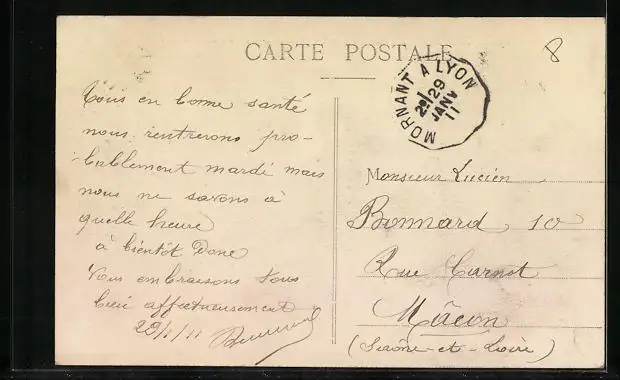 CARTE POSTALE
8
MORNANT A LYON
2e/
29
JANV
11
Tous en bonne santé
nous rentrerons pro-
bablement mardi mais
nous ne savons à
quelle heure
à bientôt Donc
Vous embrassons tous
bien affectueusement
29/1/11 Bonnard
Monsieur Lucien
Bonnard, 10
Rue Carnot
Mâcon
(Saône-et-Loire)